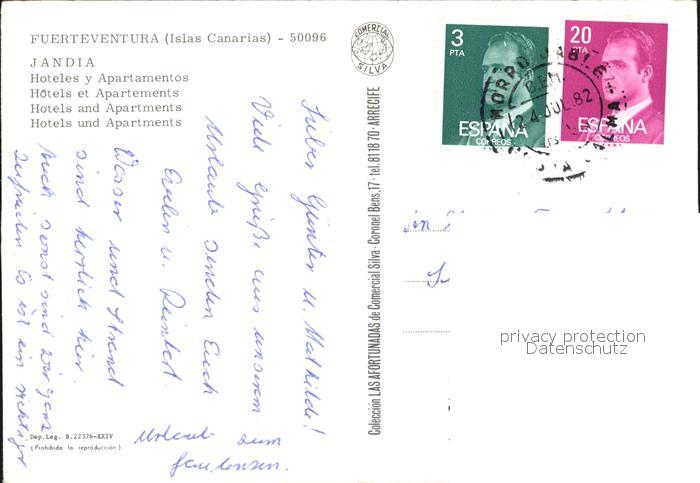 FUERTEVENTURA (Islas Canarias) - 50096
JANDIA
Hoteles y Apartamentos
Hôtels et Apartements
Hotels and Apartments
Hotels und Apartments
Lieber Günter u. Mathilde!
Viele Grüße aus unserem
Urlaub senden Euch
Evelin u. Reinhard.
Wasser und Strand
sind herrlich hier.
Auch sonst sind wir ganz
zufrieden. Es ist ein richtiger
Urlaub zum
Faulenzen.
Dep. Leg. B. 22376-XXIV
(Prohibida la reproducción)
COMERCIAL
SILVA
Colección LAS AFORTUNADAS de Comercial Silva · Coronel Bens, 17 · tel. 81 18 70 · ARRECIFE
3
PTA
ESPAÑA
CORREOS
20
PTA
ESPAÑA
CORREOS
MORRO JABLE
JUL. 82
privacy protection
Datenschutz